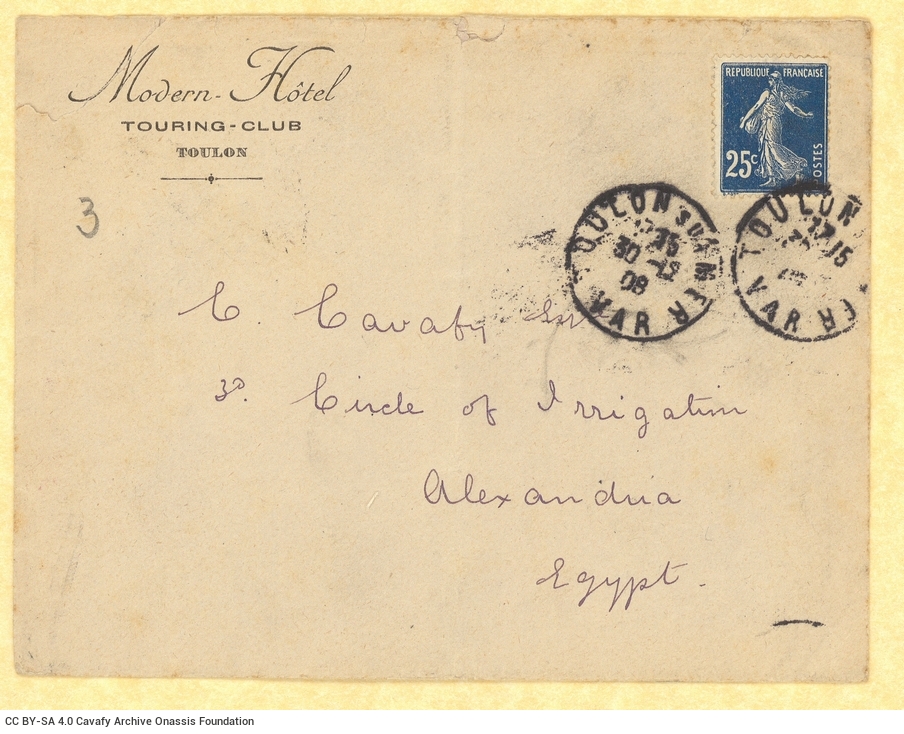 Modern-Hôtel
TOURING-CLUB
TOULON
REPUBLIQUE FRANÇAISE
25c
POSTES
3
TOULON SUR MER
17 15
30 -12
08
VAR
TOULON
17 15
VAR
C. Cavafy
3º. Circle of Irrigation
Alexandria
Egypt.
CC BY-SA 4.0 Cavafy Archive Onassis Foundation